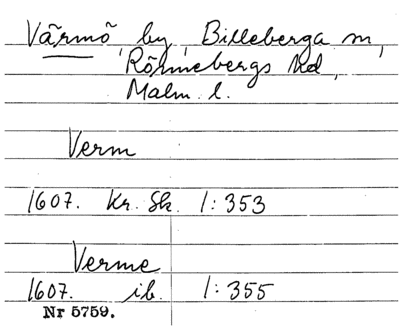 Värmö by, Billeberga sn,
Rönnebergs hd,
Malm. l.
Verm
1607. Kr. Sk. 1:353
Verme
1607. ib. 1:355
Nr 5759.